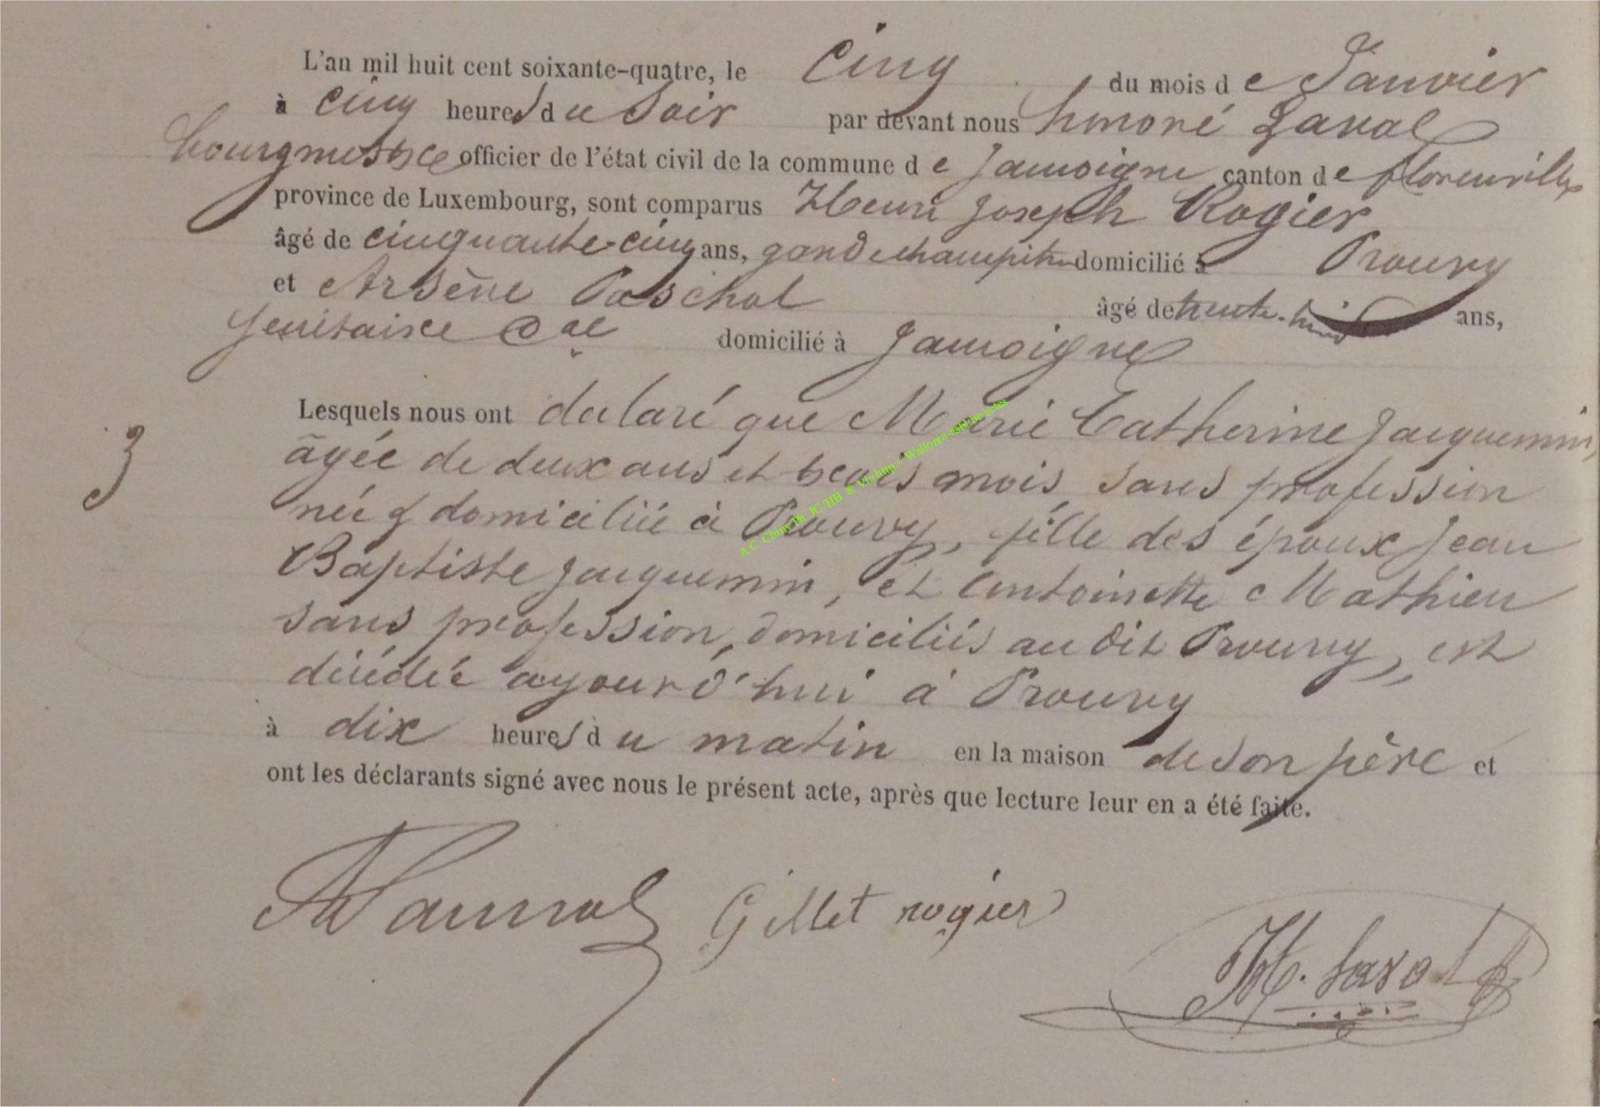 L'an mil huit cent soixante-quatre, le Cinq du mois de Janvier
à cinq heures du Soir par devant nous honoré Laval
bourgmestre officier de l'état civil de la commune de Jamoigne canton de florenville
province de Luxembourg, sont comparus Henri Joseph Rogier
âgé de cinquante-cinq ans, garde champêtre domicilié à Prouvy
et Arsène Paschal âgé de trente-huit ans,
secrétaire Cal domicilié à Jamoigne
Lesquels nous ont déclaré que Marie Catherine Jacquemin,
3
âgée de deux ans et trois mois, sans profession
née & domiciliée à Prouvy, fille des époux Jean
Baptiste Jacquemin, et Antoinette Mathieu
sans profession, domiciliés au dit Prouvy, est
décédée aujourd'hui à Prouvy
à dix heures du matin en la maison de son père et
ont les déclarants signé avec nous le présent acte, après que lecture leur en a été faite.
Gillet rogier
H. Laval